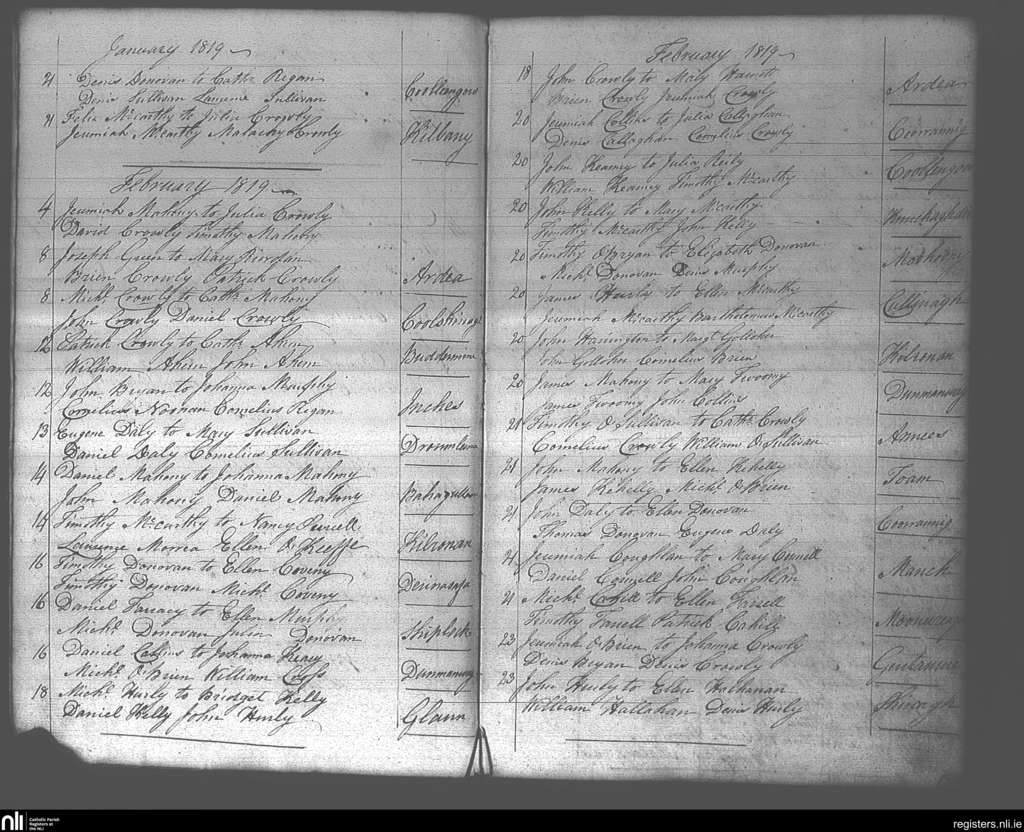 January 1819
21 Denis Donovan to Cathe. Regan
Denis Sullivan Laurence Sullivan Coollengow
21 Felix McCarthy to Julia Crowly
Jeremiah McCarthy Malachy Crowly Kilbany
February 1819
4 Jeremiah Mahony to Julia Crowly
David Crowly Timothy Mahony
8 Joseph Green to Mary Riordan
Brien Crowly Patrick Crowly Ardea
8 Michl. Crowly to Cathe. Mahony
John Crowly Daniel Crowly
12 Patrick Crowly to Cathe. Ahern
William Ahern John Ahern
12 John Bryan to Johanna Murphy
Cornelius Noonan Cornelius Regan Inches
13 Eugene Daly to Mary Sullivan
Daniel Daly Cornelius Sullivan
14 Daniel Mahony to Johanna Mahony
John Mahony Daniel Mahony
14 Timothy McCarthy to Nancy Purcell
Laurence Ellen O'Keeffe Kilronan
16 Timothy Donovan to Ellen Coveny
Timothy Donovan Michl. Coveny
16 Daniel to Ellen Murphy
Michl. Donovan Julia Donovan Shiplock
16 Daniel Collins to Johanna Keary
Michl. O'Brien William Dunmanway
18 Michl. Hurly to Bridget Kelly
Daniel Kelly John Hurly Glaun
February 1819
18 John Crowly to Mary
Brien Crowly Jeremiah Crowly Ardea
20 Jeremiah Collins to Julia Callaghan
Denis Callaghan Cornelius Crowly
20 John Kearney to Julia Reily
William Kearney Timothy McCarthy
20 John Kelly to Mary McCarthy
Timothy McCarthy John Kelly
20 Timothy O'Bryan to Elizabeth Donovan
Michl. Donovan Denis Murphy
20 James Hurly to Ellen McCarthy
Jeremiah McCarthy Bartholomew McCarthy
20 John Harrington to Margt. Gollohir
John Gollohir Cornelius Brien Kilronan
20 James Mahony to Mary Twoomy
James Twoomy John Collins Dunmanway
21 Timothy O'Sullivan to Cathe. Crowly
Cornelius Crowly William O'Sullivan
21 John Mahony to Ellen Kehelly
James Kehelly Michl. O'Brien Toam
21 John Daly to Ellen Donovan
Thomas Donovan Eugene Daly
21 Jeremiah Coughlan to Mary Connell
Daniel Connell John Coughlan Manch
21 Michl. Cahill to Ellen Farrell
Timothy Farrell Patrick Cahill
23 Jeremiah O'Brien to Johanna Crowly
Denis Bryan Denis Crowly
23 John Hurly to Ellen Hallahan
William Hallahan Denis Hurly
nli Catholic Parish
Registers at
the NLI
registers.nli.ie